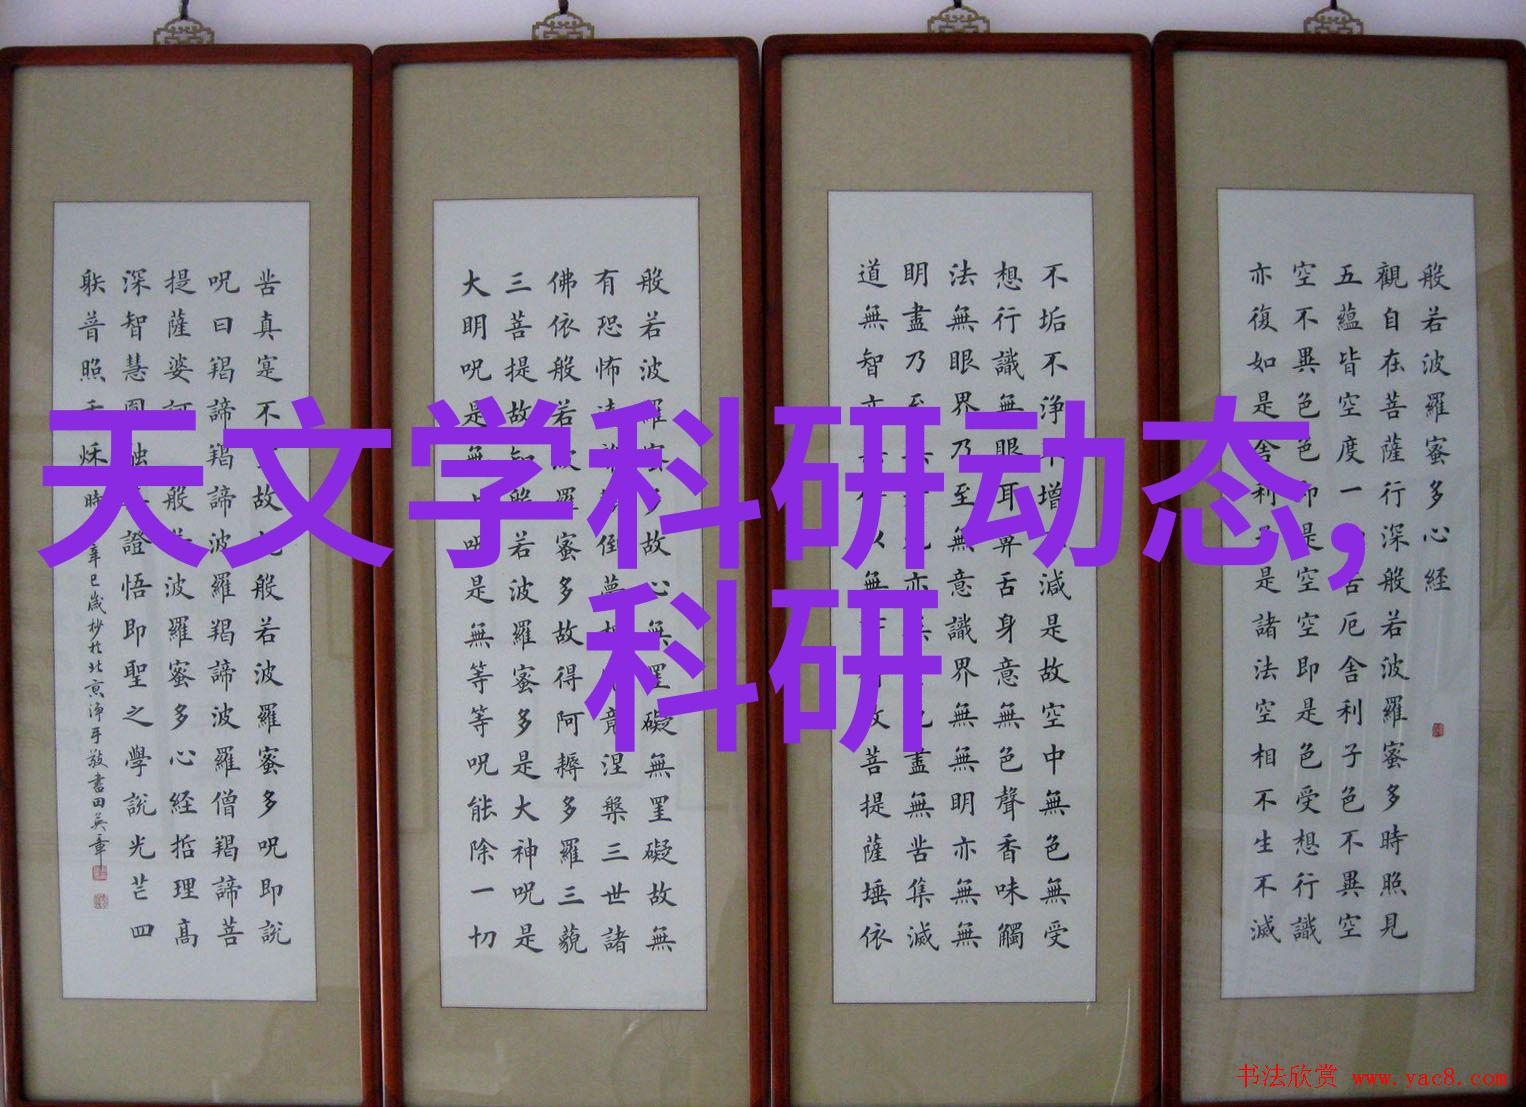 天文学科研动态,
科研
般若波羅蜜多心経
觀自在菩薩行深般若波羅蜜多時照見
五蘊皆空度一苦厄舍利子色不異空
空不異色色即是空空即是色受想行識
亦復如是舍利子是諸法空相不生不滅
不垢不淨不增不減是故空中無色無受
想行識無眼耳鼻舌身意無色聲香味觸
法無眼界乃至無意識界無無明亦無無
明盡乃至亦盡無苦集滅
道無智亦以無故菩提薩埵依
般若波羅蜜多故心無罣礙無罣礙故無
有恐怖遠倒夢竟涅槃三世諸
佛依般若波羅蜜多故得阿耨多羅三藐
三菩提故知般若波羅蜜多是大神呪是
大明呪是無呪是無等等呪能除一切
苦真寔不故般若波羅蜜多呪即説
呪曰羯諦羯諦波羅羯諦波羅僧羯諦菩
提薩婆訶般若波羅蜜多心経哲理高
深智慧圓融證悟即聖之學說光芒四
躲普照千秋時辛巳歲杪於北京淨手敬書田英章
书法欣赏 www.yac8.com